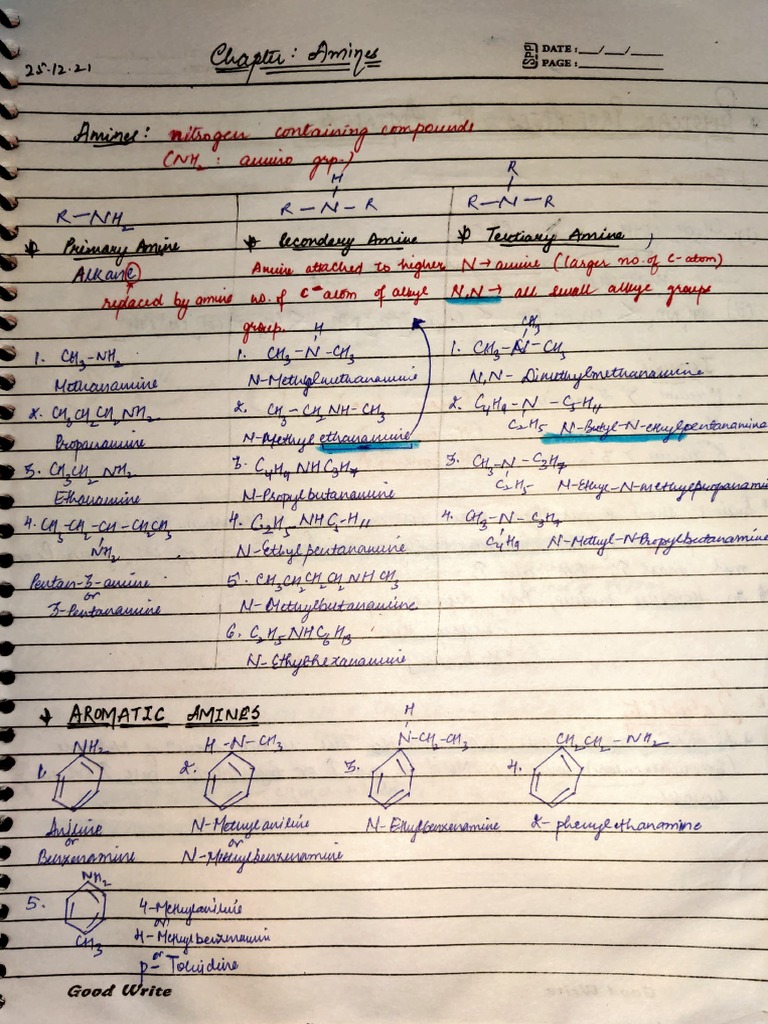 25.12.21
Chapter: Amines
SPP DATE: __/__/__
PAGE: ______
Amines: nitrogen containing compounds
(NH2 : amino grp.)
R-NH2
H
R-N-R
R
R-N-R
Primary Amine
Alkane
replaced by amine
Secondary Amine
Amine attached to higher
no. of C-atom of alkyl
group.
Tertiary Amine
N→amine (larger no. of C-atom)
N,N→ all small alkyl groups
1. CH3-NH2
Methanamine
2. CH3CH2CH2NH2
Propanamine
3. CH3CH2NH2
Ethanamine
4. CH3-CH2-CH-CH2CH3
NH2
Pentan-3-amine
or
3-Pentanamine
H
1. CH3-N-CH3
N-Methylmethanamine
2. CH3-CH2NH-CH3
N-Methyl ethanamine
3. C4H9NHC3H7
N-Propylbutanamine
4. C2H5NHC5H11
N-Ethylpentanamine
5. CH3CH2CH2CH2NHCH3
N-Methylbutanamine
6. C2H5NHC6H13
N-Ethylhexanamine
CH3
1. CH3-N-CH3
N,N-Dimethylmethanamine
2. C4H9-N-C5H11
C2H5
N-Butyl-N-ethylpentanamine
3. CH3-N-C3H7
C2H5
N-Ethyl-N-methylpropanami
4. CH3-N-C3H7
C4H9
N-Methyl-N-Propylbutanamine
AROMATIC AMINES
1.
NH2
Aniline
or
Benzenamine
2.
H-N-CH3
N-Methylaniline
or
N-Methylbenzenamine
3.
H
N-CH2-CH3
N-Ethylbenzenamine
4.
CH2CH2-NH2
2-phenylethanamine
5.
NH2
CH3
4-Methylaniline
or
4-Methylbenzenamin
or
p-Toluidine
Good Write